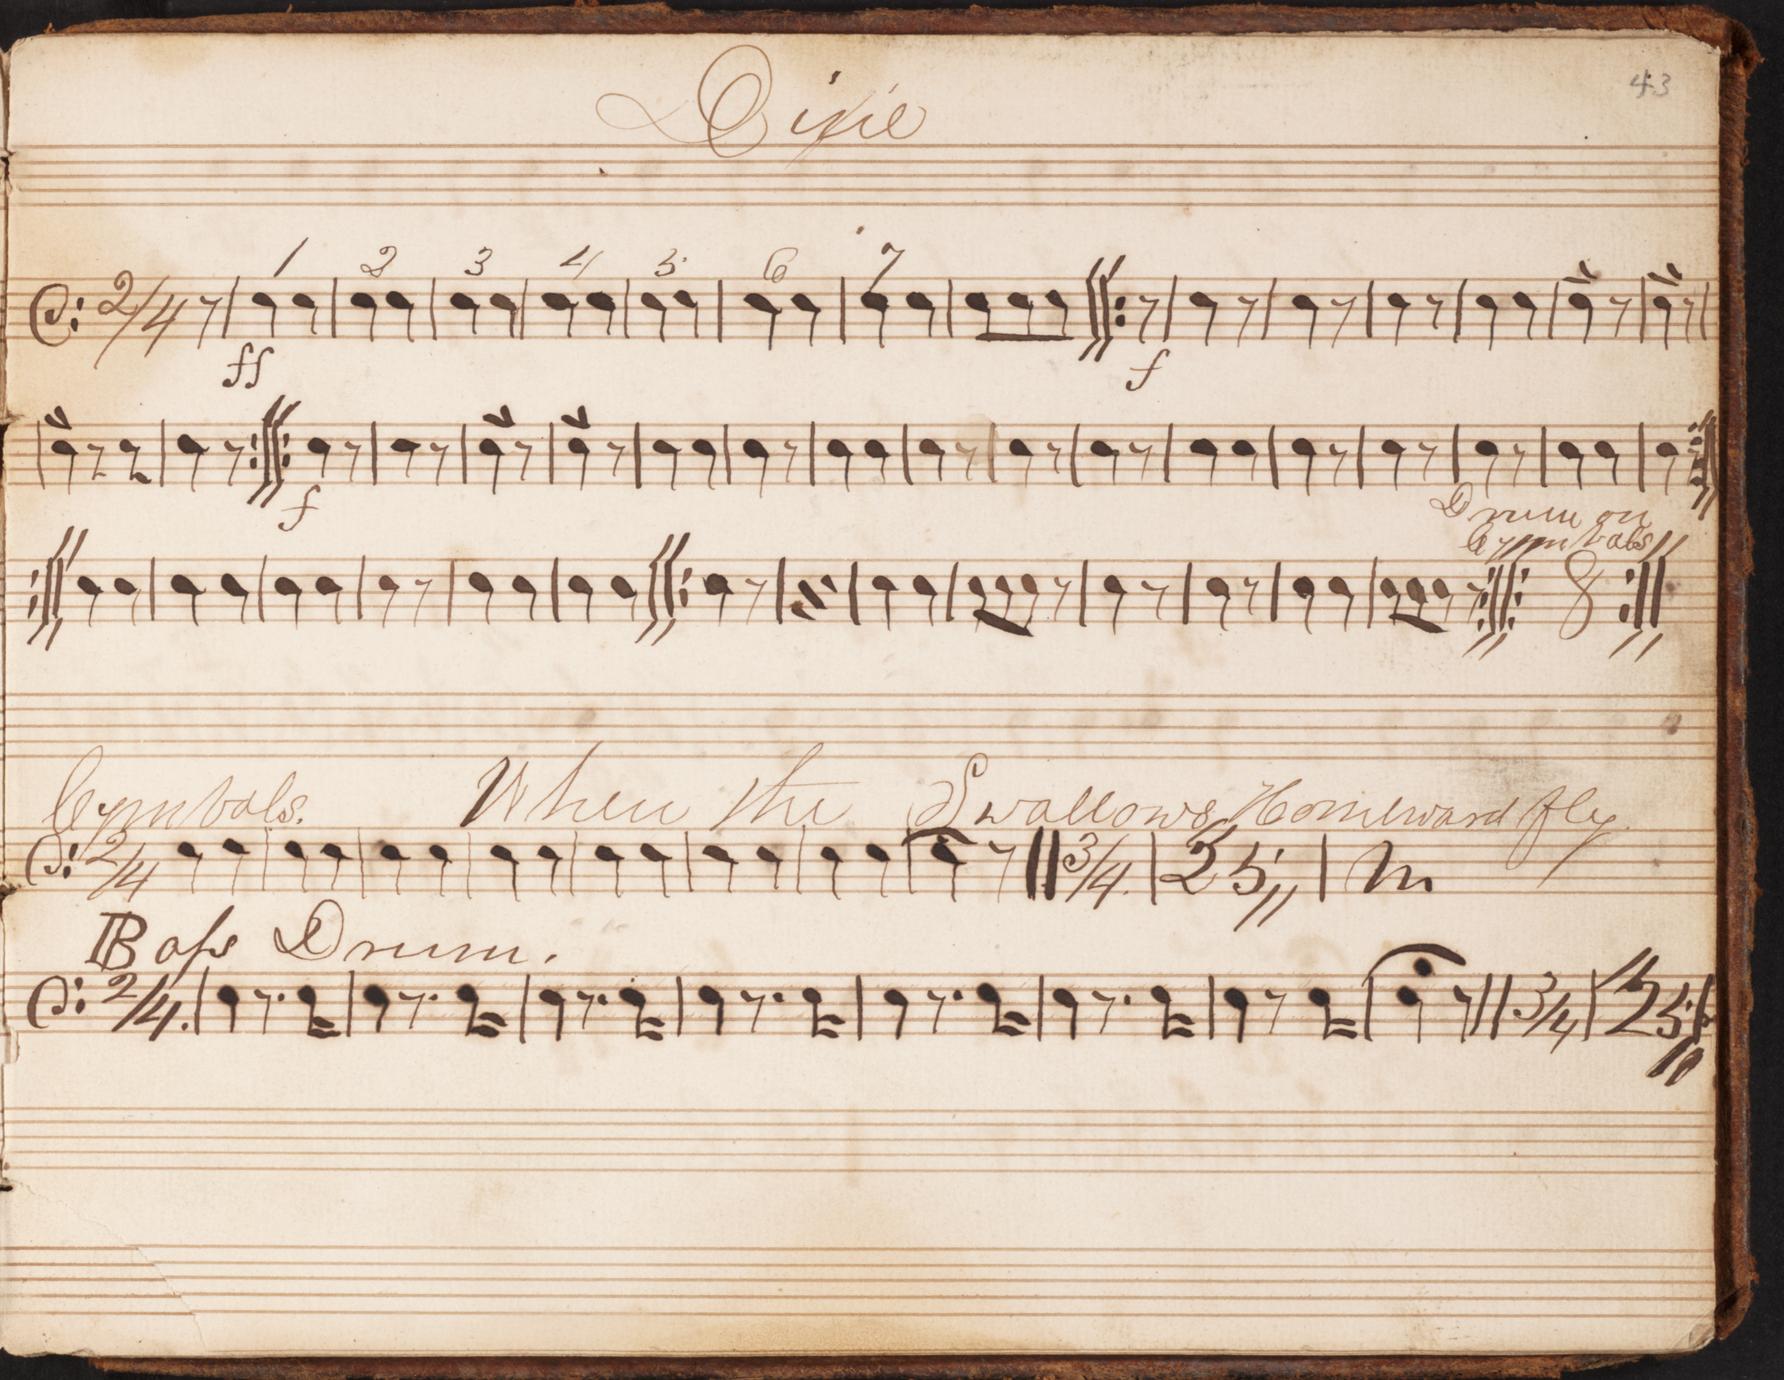 43
Dixie
1 2 3 4 5 6 7
2/4
ff f
f
Drum on
Cymbals
8
Cymbals. When the Swallows Homeward fly
2/4 3/4. 25,,
Bass Drum.
2/4. 3/4 25